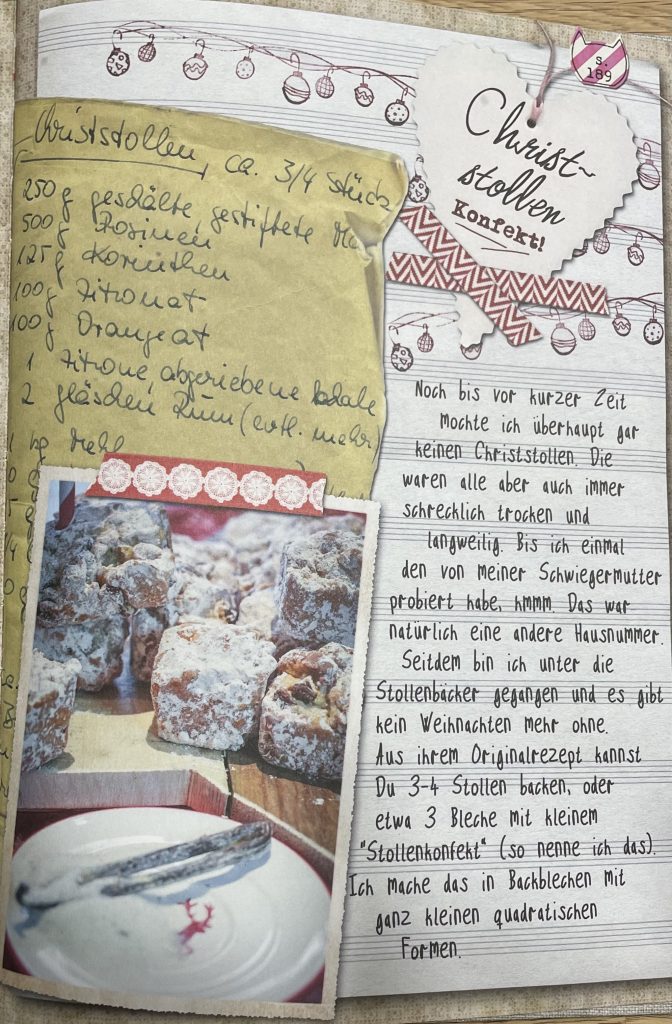 Christstollen, ca. 3/4 Stück
250 g geschälte, gestiftete
500 g Rosinen
125 g Korinthen
100 g Zitronat
100 g Orangeat
1 Zitrone, abgeriebene Schale
2 Gläschen Rum (evtl. mehr)
kg Mehl
s.
189
Christ-
stollen
Konfekt!
Noch bis vor kurzer Zeit
mochte ich überhaupt gar
keinen Christstollen. Die
waren alle aber auch immer
schrecklich trocken und
langweilig. Bis ich einmal
den von meiner Schwiegermutter
probiert habe, hmmm. Das war
natürlich eine andere Hausnummer.
Seitdem bin ich unter die
Stollenbäcker gegangen und es gibt
kein Weihnachten mehr ohne.
Aus ihrem Originalrezept kannst
Du 3-4 Stollen backen, oder
etwa 3 Bleche mit kleinem
"Stollenkonfekt" (so nenne ich das).
Ich mache das in Backblechen mit
ganz kleinen quadratischen
Formen.